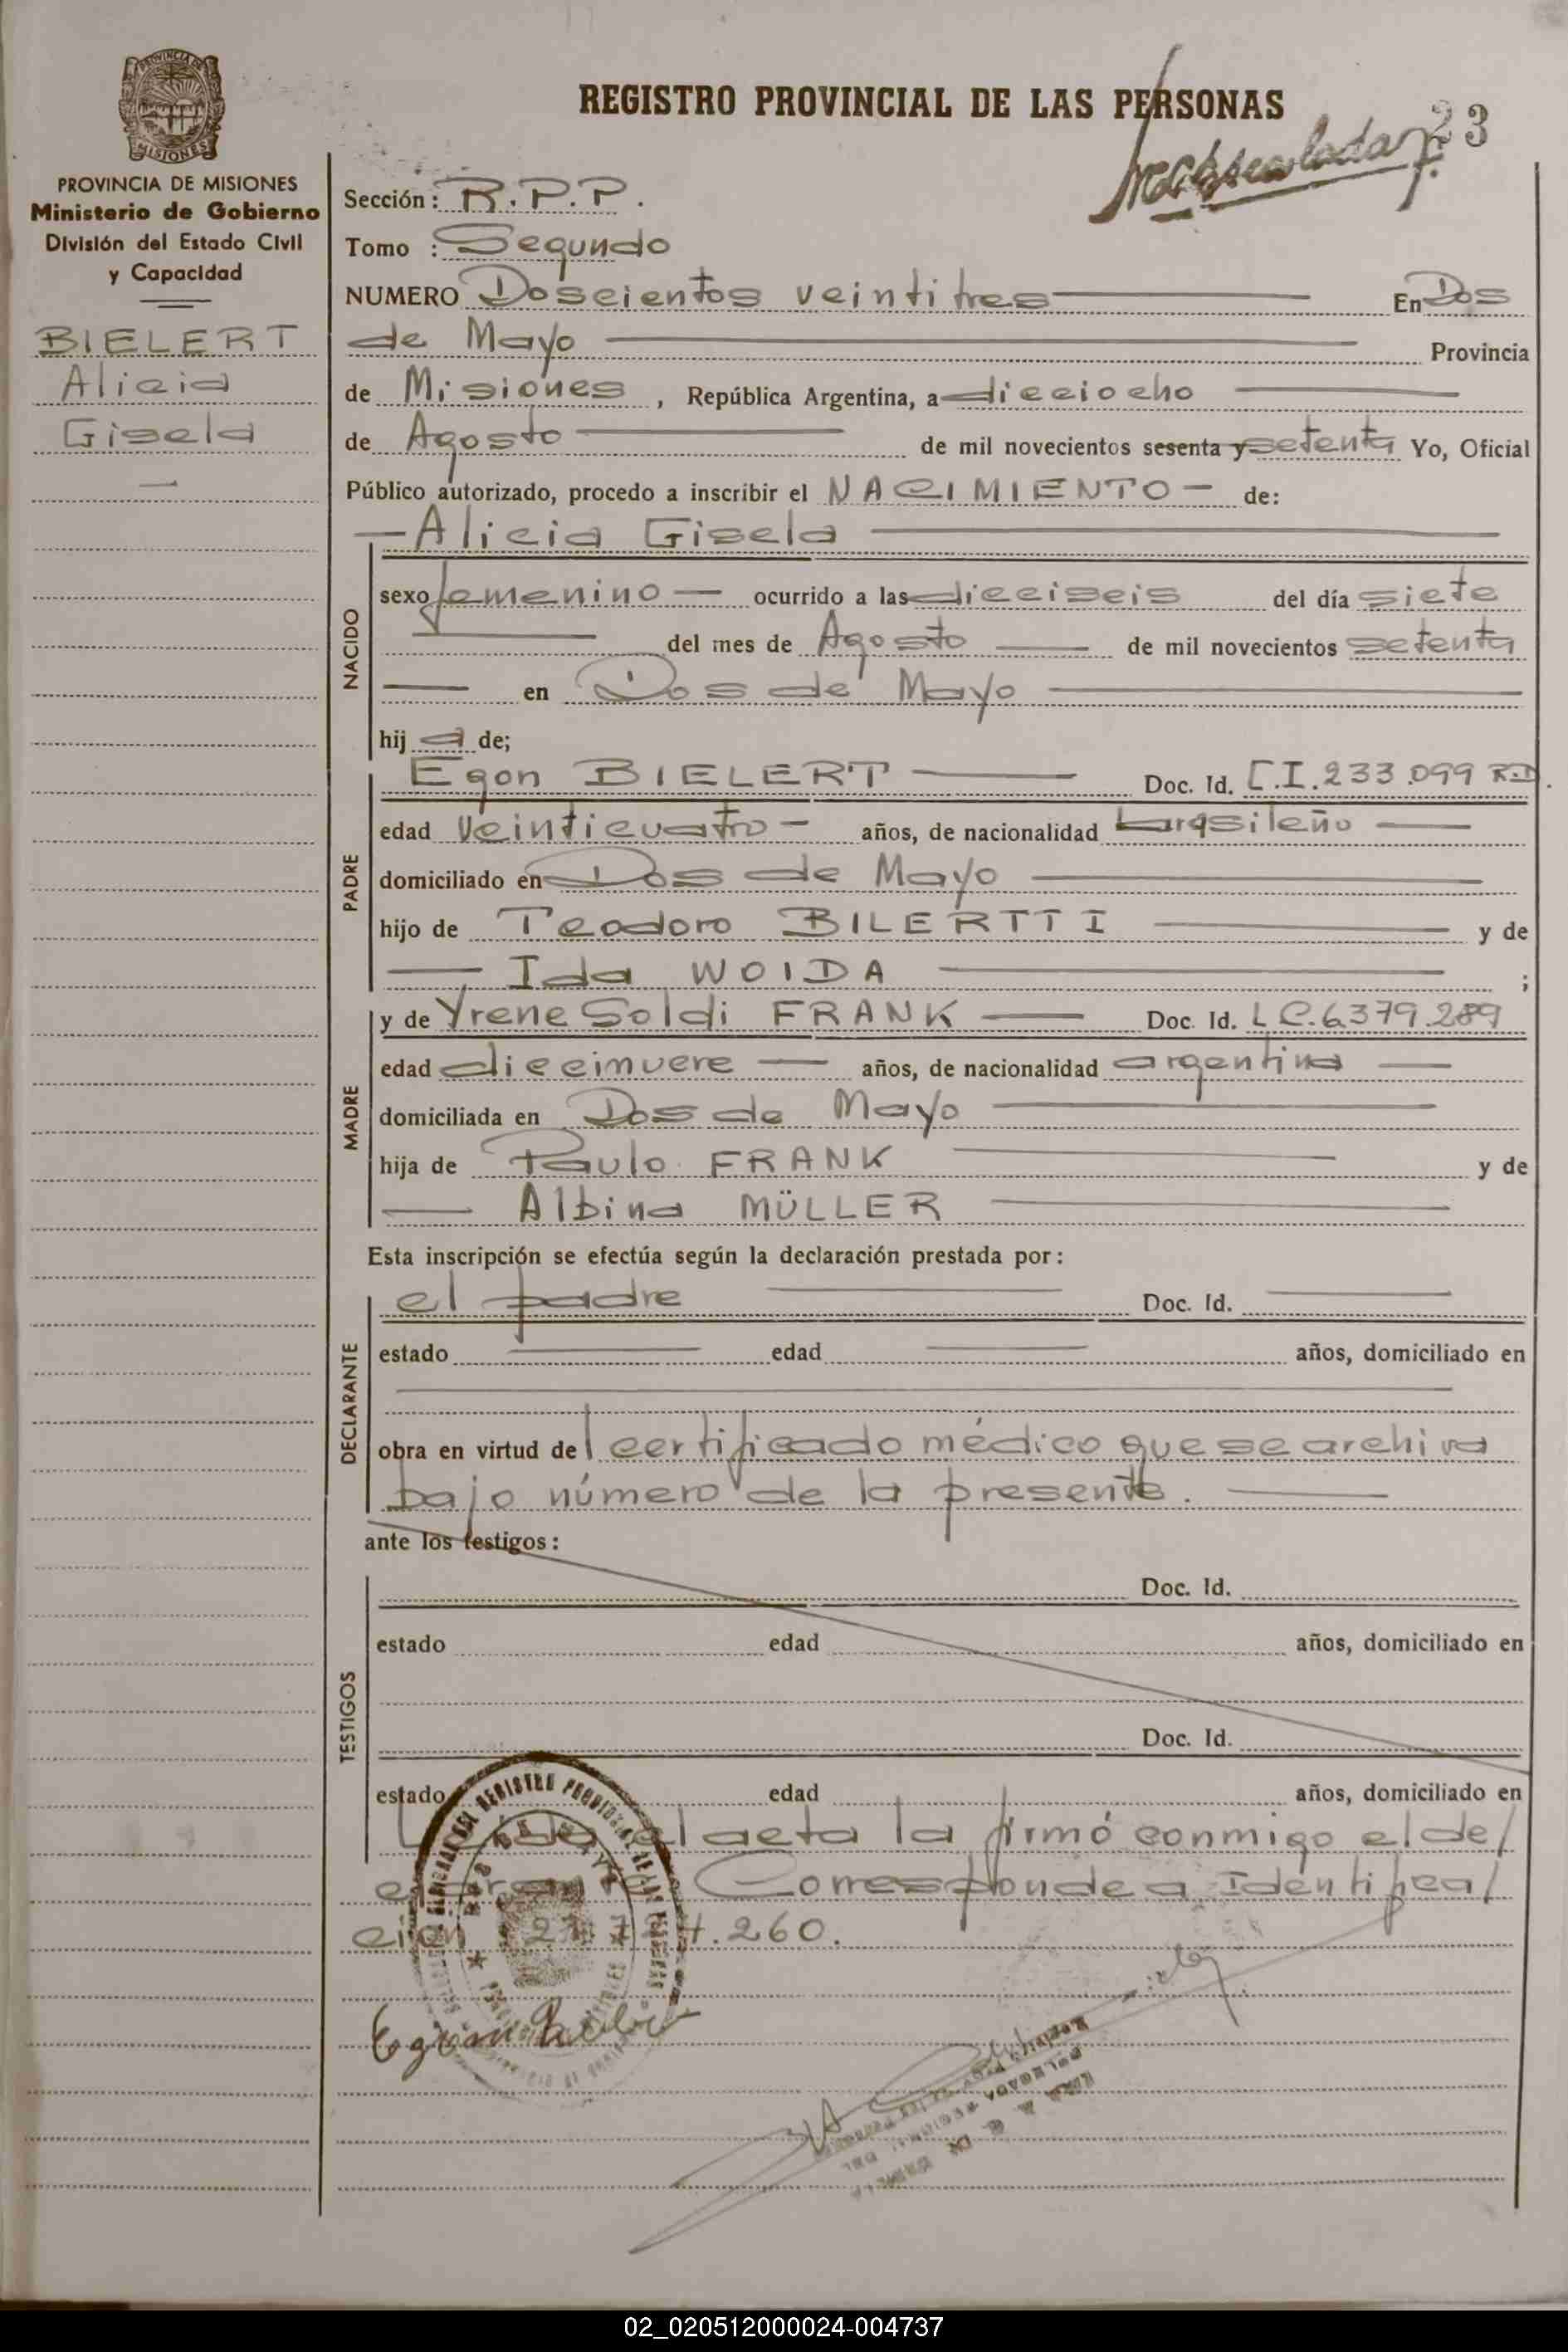 REGISTRO PROVINCIAL DE LAS PERSONAS
23
PROVINCIA DE MISIONES
Ministerio de Gobierno
División del Estado Civil
y Capacidad
BIELERT
Alicia
Gisela
Sección: R.P.P.
Tomo : Segundo
NUMERO Doscientos veintitres En Dos
de Mayo Provincia
de Misiones, República Argentina, a dieciocho
de Agosto de mil novecientos sesenta y setenta Yo, Oficial
Público autorizado, procedo a inscribir el NACIMIENTO - de:
Alicia Gisela
NACIDO
sexo femenino ocurrido a las dieciseis del día siete
del mes de Agosto de mil novecientos setenta
en Dos de Mayo
hij a de;
PADRE
Egon BIELERT Doc. Id. C.I.233.099 R.D.
edad veinticuatro - años, de nacionalidad brasileño
domiciliado en Dos de Mayo
hijo de Teodoro BILERTTI y de
Ida WOIDA ;
MADRE
y de Yrene Soldi FRANK Doc. Id. L C.6.379.289
edad diecinueve años, de nacionalidad argentina
domiciliada en Dos de Mayo
hija de Paulo FRANK y de
Albina MÜLLER
Esta inscripción se efectúa según la declaración prestada por:
DECLARANTE
el padre Doc. Id.
estado edad años, domiciliado en
obra en virtud del certificado médico que se archiva
bajo número de la presente.
ante los testigos:
TESTIGOS
Doc. Id.
estado edad años, domiciliado en
Doc. Id.
estado edad años, domiciliado en
el acta la firmó conmigo el de/
Corresponde a Identifica/
cion .260.
Egon
02_020512000024-004737